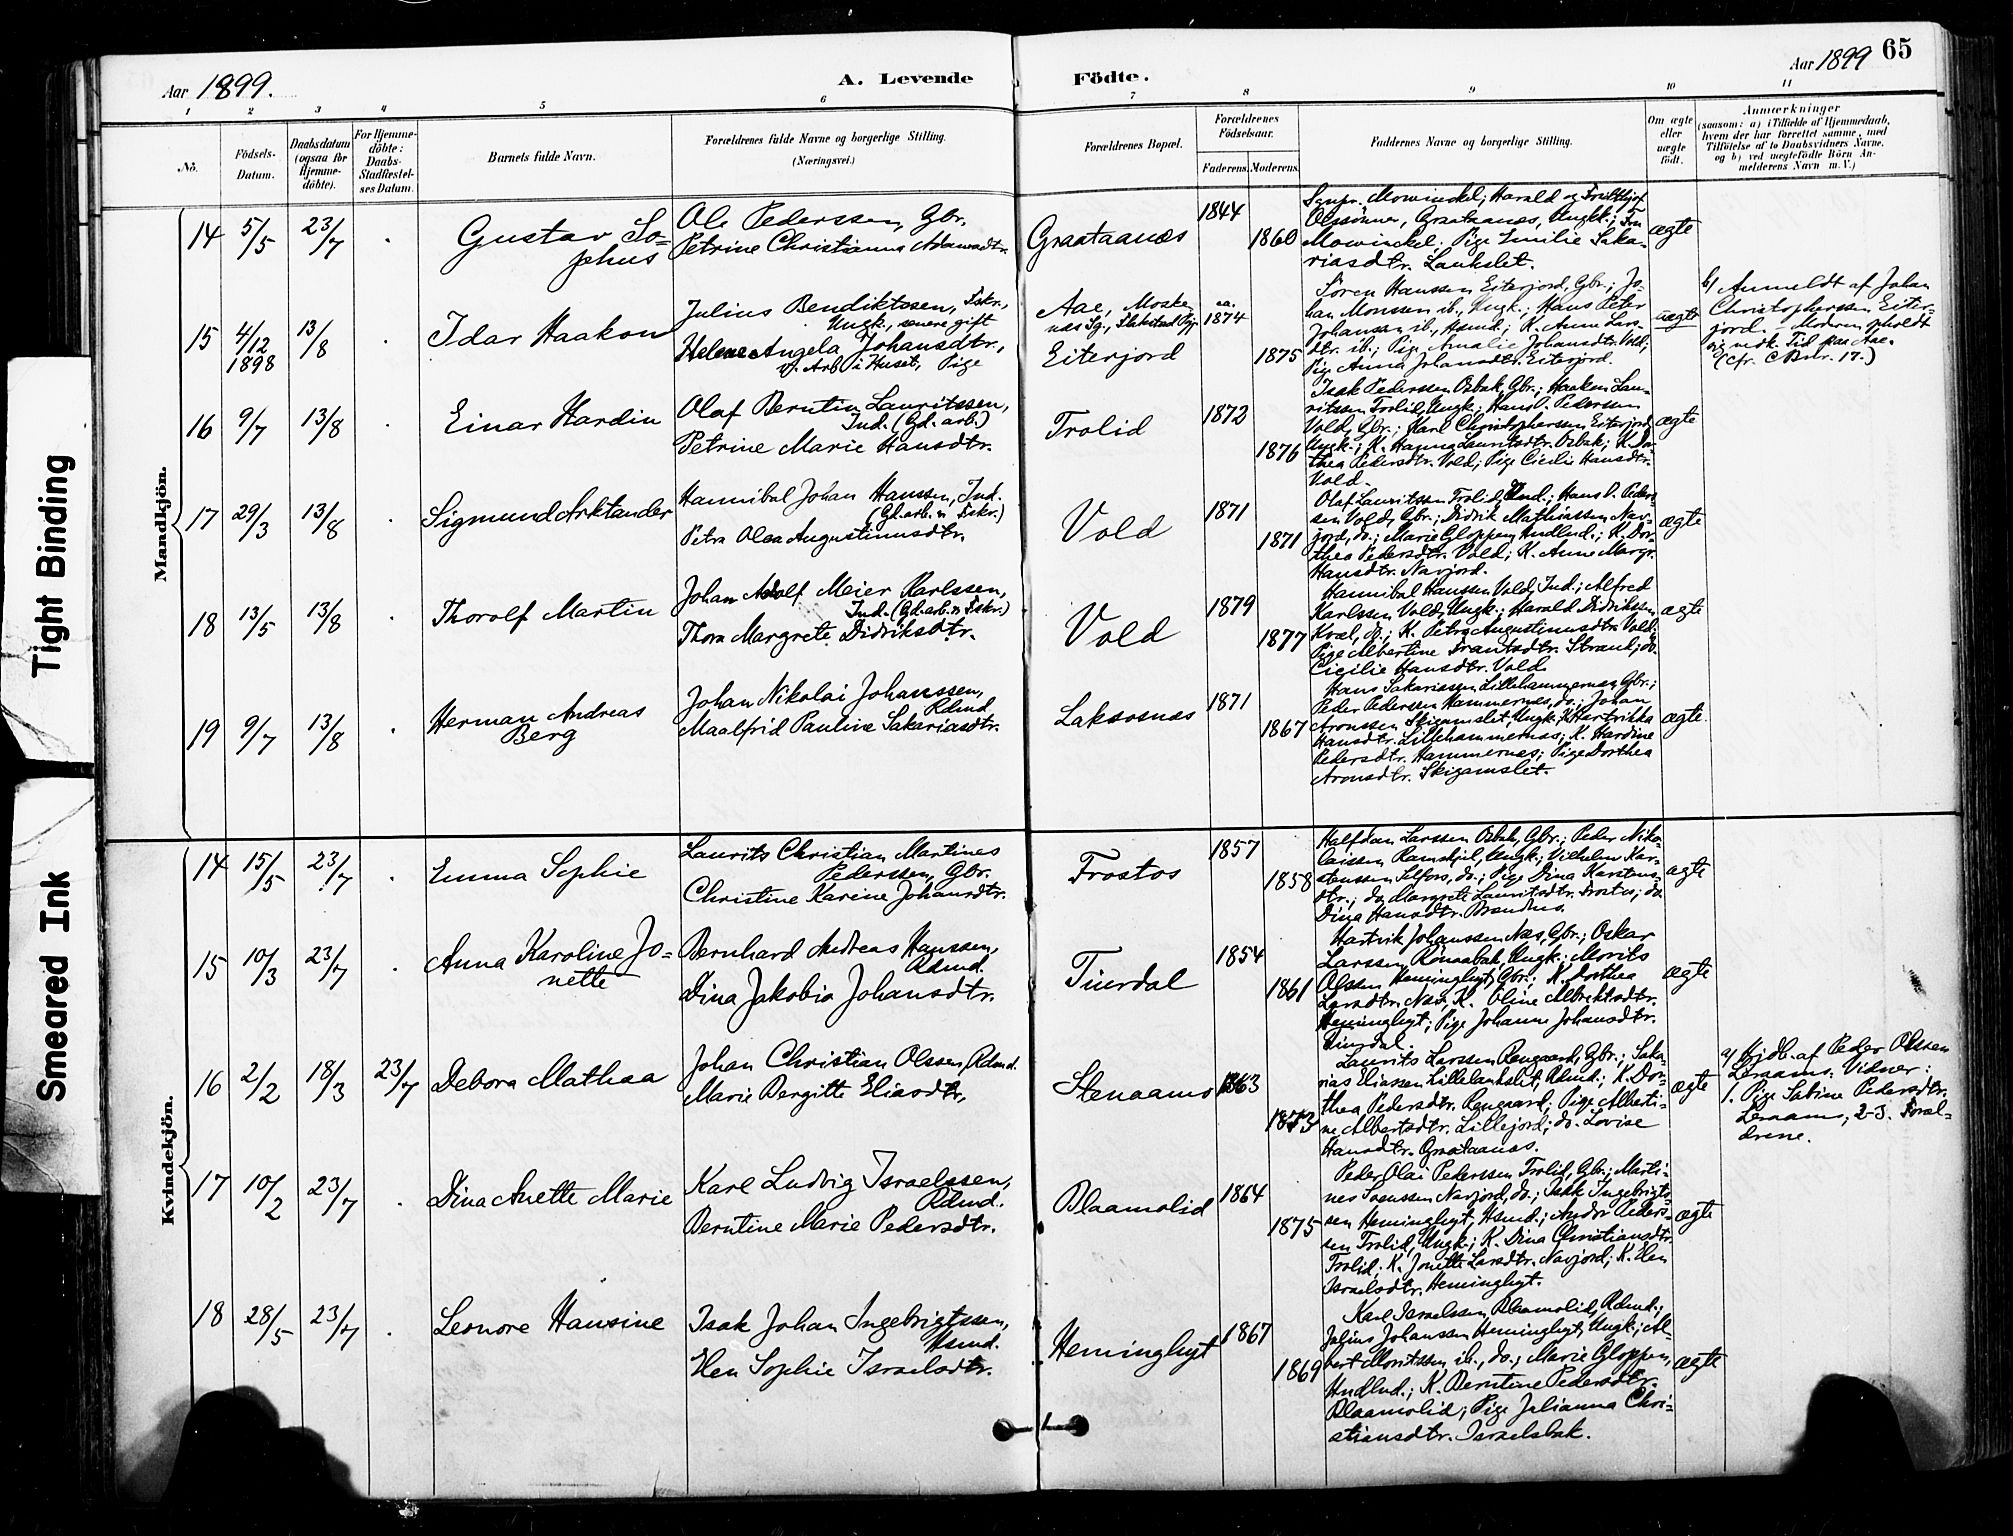 Tight Binding
Smeared Ink
Aar 1899.
A. Levende
Födte.
Aar 1899
65
1 2 3 4 5 6 7 8 9 10 11
No.
Födsels-
Datum.
Daabsdatum
(ogsaa for
Hjemme-
döbte).
For Hjemme-
döbte:
Daabs-
Stadfæstel-
ses Datum.
Barnets fulde Navn.
Forældrenes fulde Navne og borgerlige Stilling.
(Næringsvei.)
Forældrenes Bopæl.
Forældrenes
Födselsaar.
Faderens.
Moderens.
Faddernes Navne og borgerlige Stilling.
Om ægte
eller
uægte
födt.
Anmærkninger
(saasom: a) i Tilfælde af Hjemmedaab,
hvem der har forrettet samme, med
Tilföielse af to Daabsvidners Navne,
og b) ved uægtefödte Börn An-
melderens Navn m. V.)
Mandkjön.
14 5/5 23/7 .
Gustav So-
phus
Ole Pederssen, Gbr.
Petrine Christianna Adamsdtr.
Graataanæs
1844
1860
Mowinckel, Harald og Fridthjof
Olssönner, Graataanæs, Ungk.; Fru
Mowinckel; Pige Emilie Saka-
riasdtr. Lankslet.
ægte
15 4/12 1898 13/8 .
Idar Haakon
Julius Bendiktssen, Fskr.,
Ungk., senere gift
Helene Angela Johansdtr.,
v. Arb. i Huset, Pige
Aae, Moske-
næs Sg., Flakstad Pgj.
Eiterjord
ca.
1874
1875
Sören Hanssen Eiterjord, Gbr.; Jo-
han Monssen ib., Ungk.; Hans Peter
Johansen ib., Hsmd.; K. Anne Lars-
dtr. ib.; Pige Amalie Johansdtr. Vold;
Pige Anna Johansdtr. Eiterjord.
uægte
b) Anmeldt af Johan
Christopherssen Eiter-
jord. Modren opholdt
sig nok. Tid paa Aae.
(cfr. C 17.)
16 9/7 13/8 .
Einar Hardin
Olaf Berntin Lauritssen,
Ind. (Gd. arb.)
Petrine Marie Hansdtr.
Trolid
1872
1876
Isak Pederssen Osbak, Gbr.; Haakon Lau-
ritssen Trolid, Ungk.; Hans P. Pederssen
Vold, Gbr.; Karl Christopherssen Eiterjord,
Ungk.; K. Hanna Lauritsdtr. Osbak; K. Do-
rthea Pedersdtr. Vold; Pige Cicilie Hansdtr.
Vold.
ægte
17 29/3 13/8 .
Sigmund Arktander
Hannibal Johan Hanssen, Ind.
(Gd. arb. & Fskr.)
Petra Olea Augustinusdtr.
Vold
1871
1871
Olaf Lauritssen Trolid, Ind.; Hans P. Peders-
sen Vold, Gbr.; Didrik Mathiassen Nav-
jord, do.; Marie Gloppen, Hndlnd.; K. Dor-
thea Pedersdtr. Vold; K. Anne Margr.
Hansdtr. Navjord.
ægte
18 13/5 13/8 .
Thorolf Martin
Johan Adolf Meier Karlssen,
Ind. (Gd. arb. & Fskr.)
Thora Margrete Didriksdtr.
Vold
1879
1877
Hannibal Hanssen Vold, Ind.; Alfred
Karlssen Vold, Ungk.; Harald Didrikssen
Kvæl, do.; K. Petra Augustinusdtr. Vold;
Pige Albertine Frantsdtr. Strand; do.
Cicilie Hansdtr. Vold.
ægte
19 9/7 13/8 .
Herman Andreas
Berg
Johan Nikolai Johanssen,
Rdmd.
Maalfrid Pauline Sakariasdtr.
Laksosnæs
1871
1867
Hans Sakariassen Lillehammernæs, Gbr.;
Peder Pederssen Hammernæs, do.; Johan
Aronssen Skigamslet, Ungk.; K. Hartrikka
Hansdtr. Lillehammernæs; K. Hardine
Pedersdtr. Hammernæs; Pige Dorthea
Aronsdtr. Skigamslet.
ægte
Kvindekjön.
14 15/5 23/7 .
Emma Sophie
Laurits Christian Martines
Pederssen, Gbr.
Christine Karine Johansdtr.
Frostos
1857
1858
Halfdan Larssen Osbak, Gbr.; Peder Niko-
laissen Ramskjel, Ungk.; Vilhelm Kar-
stenssen Selfors, do.; Pige Dina Karstens-
dtr.; do. Margrete Lauritsdtr. Frostos; do.
Dina Hansdtr. Brændnes.
ægte
15 10/3 23/7 .
Anna Karoline Jo-
nette
Bernhard Andreas Hanssen,
Rdmd.
Dina Jakobia Johansdtr.
Tinrdal
1854
1861
Hartvik Johanssen Næs, Gbr.; Oskar
Larssen Rönaabak, Ungk.; Morits
Olssen Heminghyt, Gbr.; K. Dorthea
Larsdtr. Næs; K. Oline Albrektsdtr.
Heminghyt; Pige Johanne Johansdtr.
Tinrdal.
ægte
16 2/2 18/3 23/7
Debora Mathea
Johan Christian Olssen, Rdmd.
Marie Bergitte Eliasdtr.
Stenaamo
1863
1873
Laurits Larssen Rengaard, Gbr.; Saka-
rias Eliassen Lillelankslet, Rdmd.; K. Dor-
thea Pedersdtr. Rengaard; Pige Alberti-
ne Albertsdtr. Lillejord; do. Lovise
Hansdtr. Graataanæs.
ægte
a) Hjdb. af Peder Olssen
Leraamo. Vidner:
1. Pige Sabine Pedersdtr.
Leraamo, 2-3. Foræl-
drene.
17 10/2 23/7 .
Dina Anette Marie
Karl Ludvig Israelssen,
Rdmd.
Berntine Marie Pedersdtr.
Blaamolid
1864
1875
Peder Olai Pederssen Trolid, Gbr.; Marti-
nes Svenssen Navjord, do.; Isak Ingebrigts-
sen Heminghyt, Hsmd.; Andr. Peders-
sen Trolid, Ungk.; K. Dina Christiansdtr.
Trolid; K. Jonette Larsdtr. Navjord; K. Elen
Israelsdtr. Heminghyt.
ægte
18 28/5 23/7 .
Leonore Hansine
Isak Johan Ingebrigtssen,
Hsmd.
Elen Sophie Israelsdtr.
Heminghyt
1867
1869
Karl Israelssen Blaamolid, Rdmd.;
Julius Johanssen Heminghyt, Ungk.; Al-
bert Moritssen ib., do.; Marie Gloppen,
Hndlnd.; K. Berntine Pedersdtr.
Blaamolid; Pige Julianna Chri-
stiansdtr. Israelsbak.
ægte